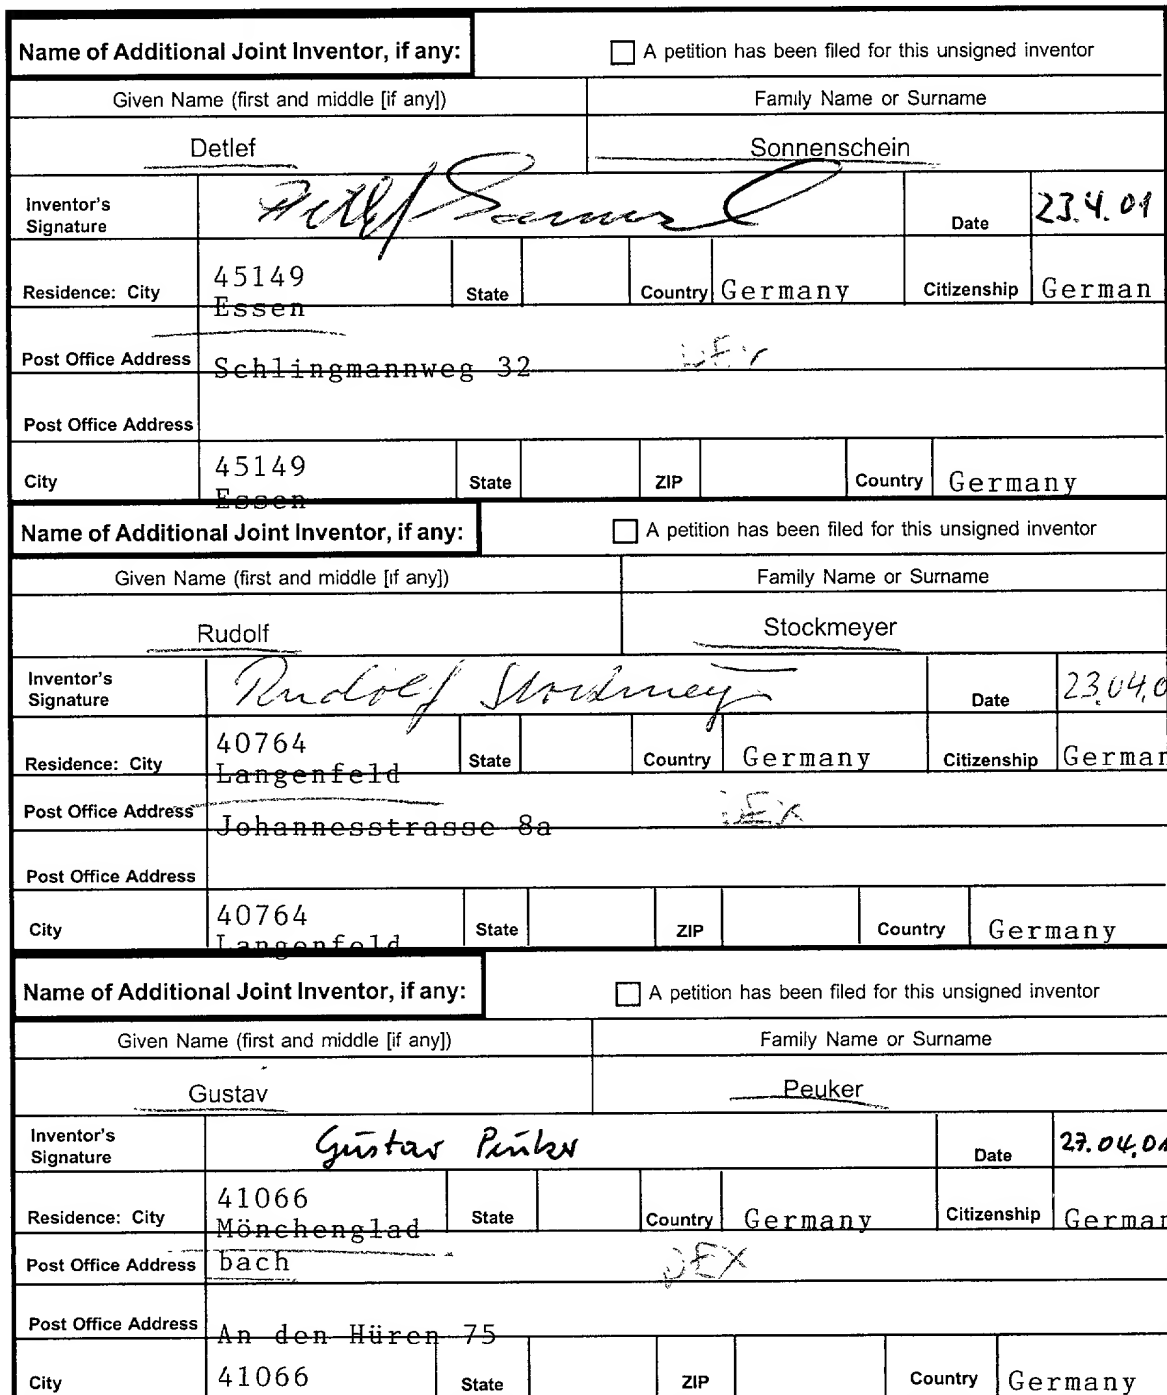 Name of Additional Joint Inventor, if any: A petition has been filed for this unsigned inventor
Given Name (first and middle [if any]) Family Name or Surname
Detlef Sonnenschein
Inventor's Signature Detlef Date 23.4.01
Residence: City 45149 Essen State Country Germany Citizenship German
Post Office Address Schlingmannweg 32
Post Office Address
City 45149 Essen State ZIP Country Germany
Name of Additional Joint Inventor, if any: A petition has been filed for this unsigned inventor
Given Name (first and middle [if any]) Family Name or Surname
Rudolf Stockmeyer
Inventor's Signature Rudolf Stockmeyer Date 23.04.0
Residence: City 40764 Langenfeld State Country Germany Citizenship German
Post Office Address Johannesstrasse 8a DEX
Post Office Address
City 40764 Langenfeld State ZIP Country Germany
Name of Additional Joint Inventor, if any: A petition has been filed for this unsigned inventor
Given Name (first and middle [if any]) Family Name or Surname
Gustav Peuker
Inventor's Signature Gustav Peuker Date 27.04.01
Residence: City 41066 Mönchenglad State Country Germany Citizenship German
Post Office Address bach DEX
Post Office Address An den Hüren 75
City 41066 State ZIP Country Germany